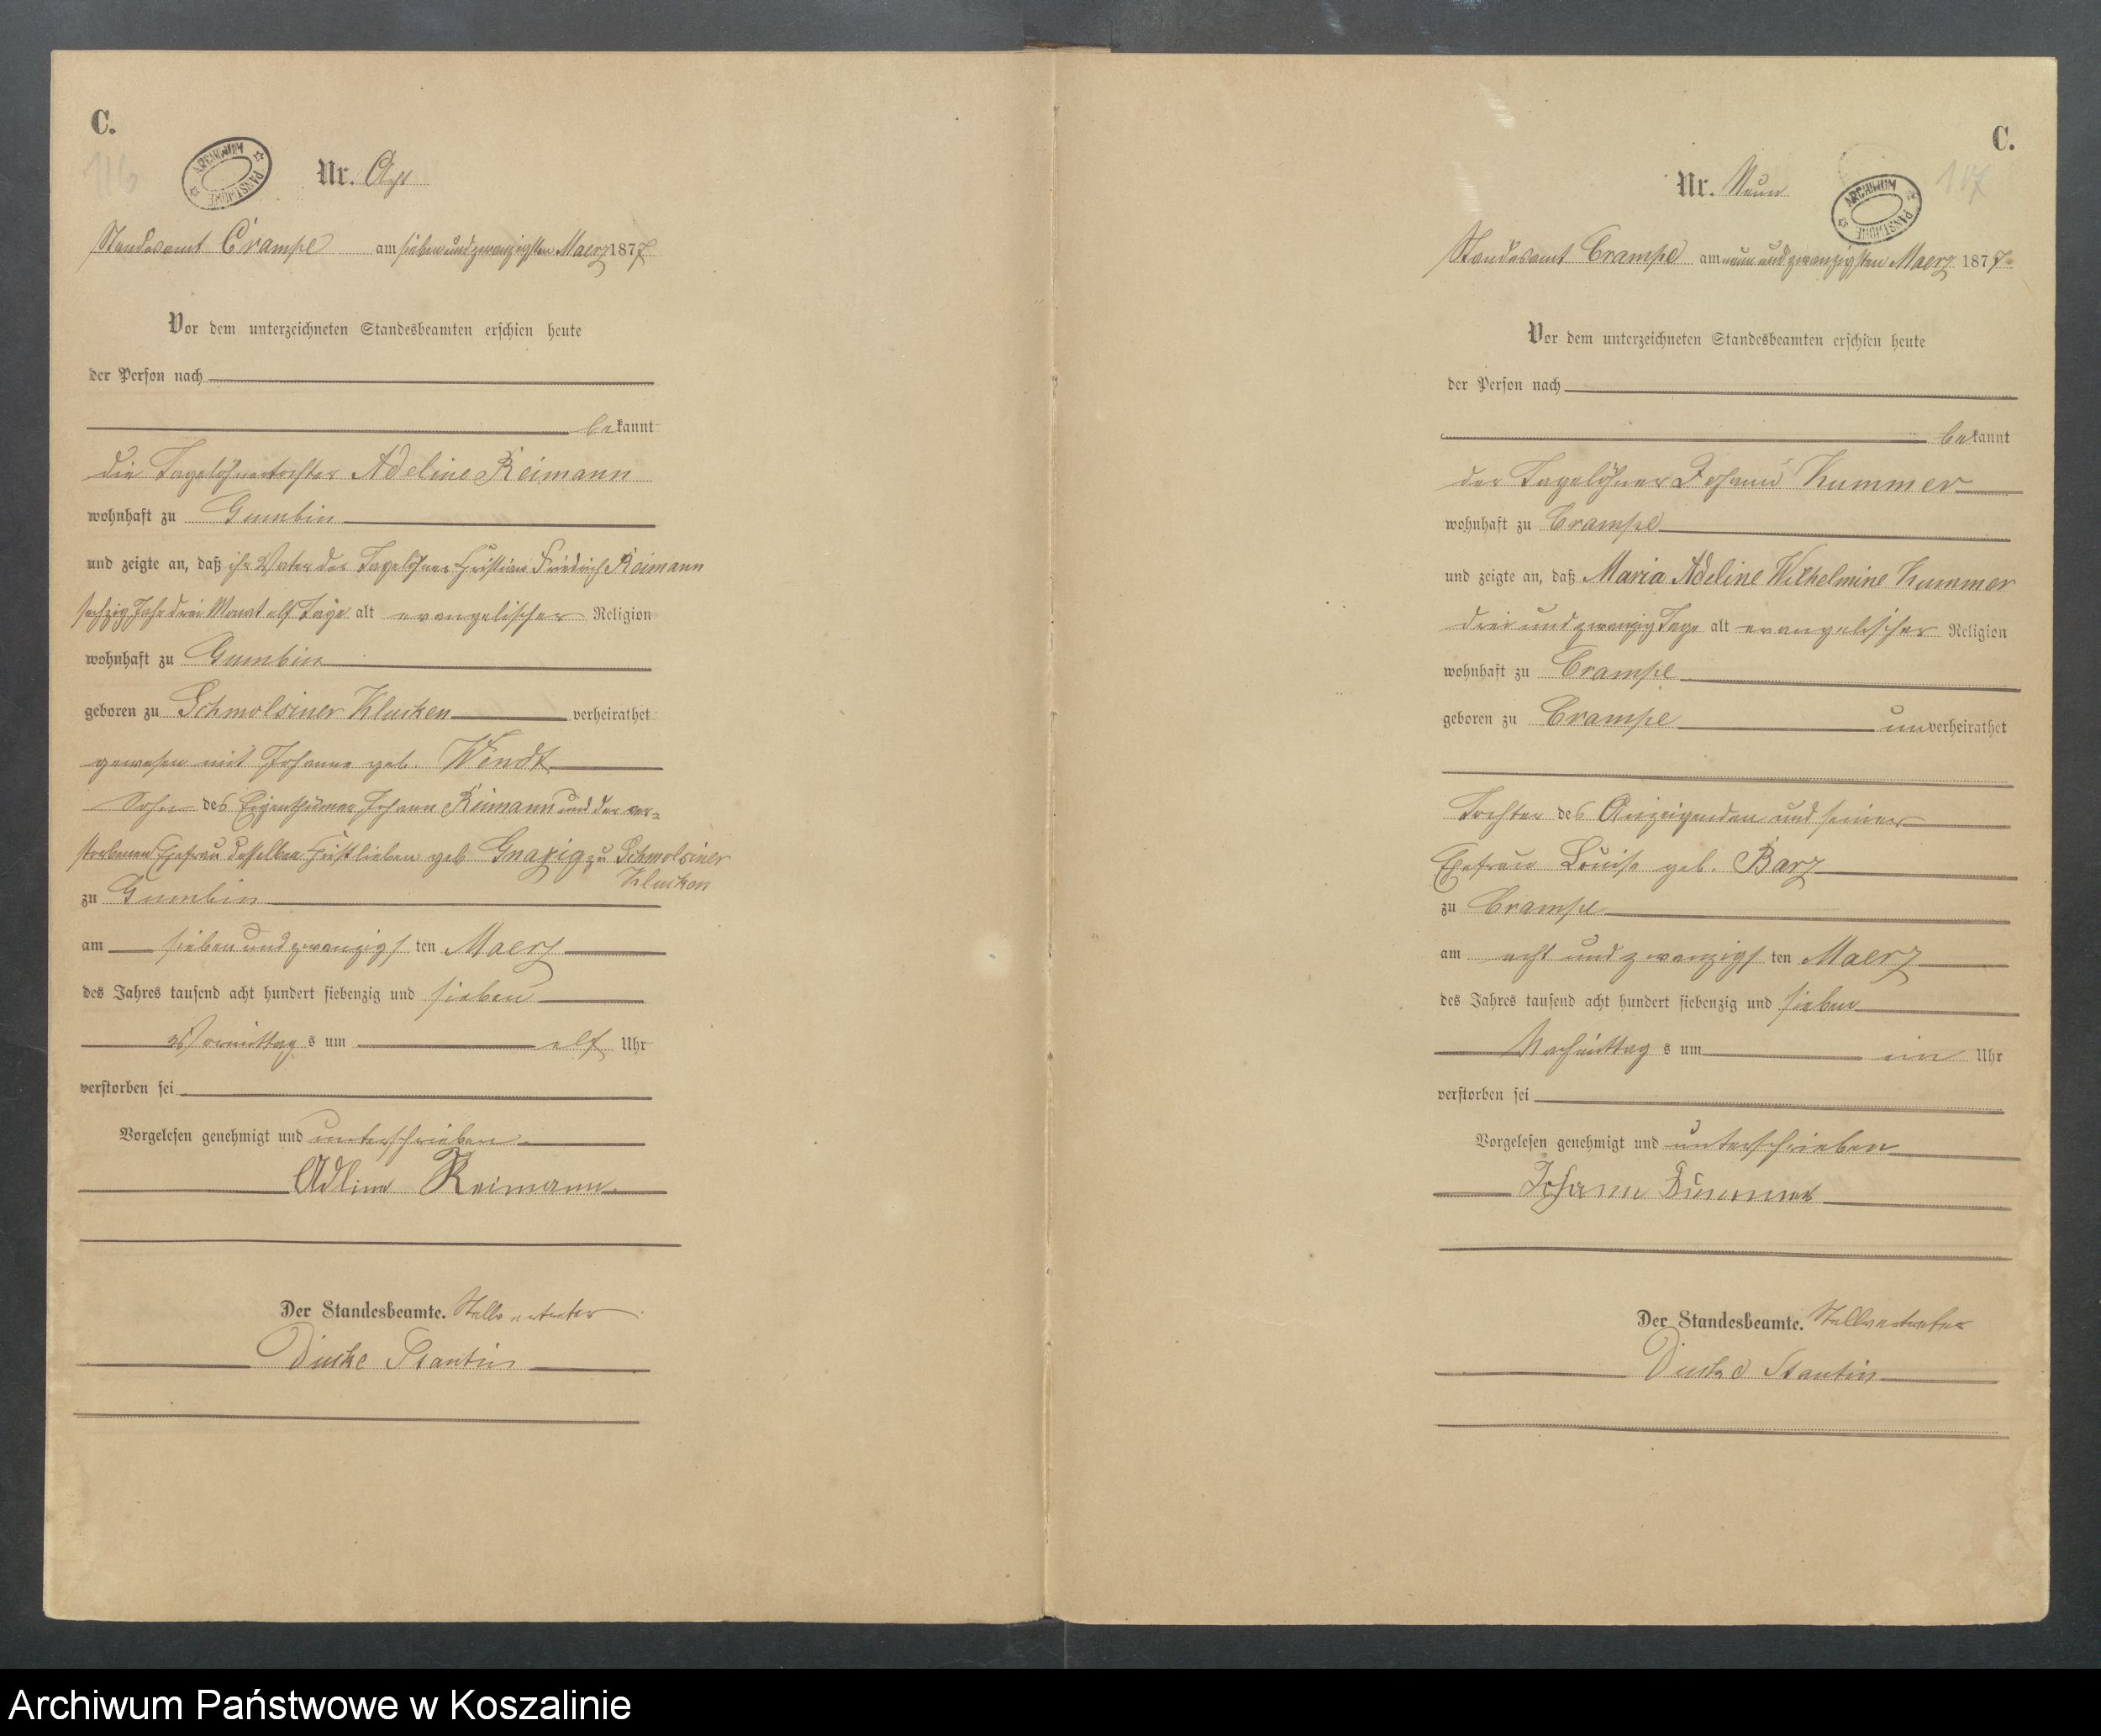 C.
116
ARCHIWUM PAŃSTWOWE
Nr. Acht
Standesamt Crampe am sieben und zwanzigsten Maerz 1877
Vor dem unterzeichneten Standesbeamten erschien heute
der Person nach
bekannt
die Tagelöhnertochter Adeline Reimann
wohnhaft zu Gumbin
und zeigte an, daß ihr Vater der Tagelöhner Christian Friedrich Reimann
sechzig Jahr drei Monat elf Tage alt evangelischer Religion
wohnhaft zu Gumbin
geboren zu Schmolsiner Klucken verheirathet
gewesen mit Johanne geb. Wendt
Sohn des Eigenthümer Johann Reimann und der ver-
storbenen Ehefrau desselben geb. zu Schmolsiner
Klucken
zu Gumbin
am sieben und zwanzigsten Maerz
des Jahres tausend acht hundert siebenzig und sieben
Vormittags um elf Uhr
verstorben sei
Vorgelesen genehmigt und unterschrieben
Adline Reimann
Der Standesbeamte. Stellvertreter
C.
117
Nr. Neun
ARCHIWUM PAŃSTWOWE
Standesamt Crampe am neun und zwanzigsten Maerz 1877
Vor dem unterzeichneten Standesbeamten erschien heute
der Person nach
bekannt
der Tagelöhner Johann Kummer
wohnhaft zu Crampe
und zeigte an, daß Maria Adeline Wilhelmine Kummer
drei und zwanzig Tage alt evangelischer Religion
wohnhaft zu Crampe
geboren zu Crampe unverheirathet
Tochter des Anzeigenden und seiner
Ehefrau Louise geb. Barz
zu Crampe
am acht und zwanzigsten Maerz
des Jahres tausend acht hundert siebenzig und sieben
Nachmittags um ein Uhr
verstorben sei
Vorgelesen genehmigt und unterschrieben
Johann Kummer
Der Standesbeamte. Stellvertreter
Archiwum Państwowe w Koszalinie